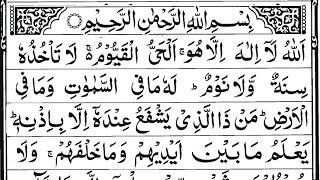 بِسْمِ اللهِ الرَّحْمٰنِ الرَّحِيْمِ
اَللهُ لَآ اِلٰهَ اِلَّا هُوَ ۚ اَلْحَيُّ الْقَيُّوْمُ ۚ لَا تَاْخُذُهٗ
سِنَةٌ وَّلَا نَوْمٌ ؕ لَهٗ مَا فِي السَّمٰوٰتِ وَمَا فِي
الْاَرْضِ ؕ مَنْ ذَا الَّذِيْ يَشْفَعُ عِنْدَهٗٓ اِلَّا بِاِذْنِهٖ ؕ
يَعْلَمُ مَا بَيْنَ اَيْدِيْهِمْ وَمَا خَلْفَهُمْ ۚ وَلَا